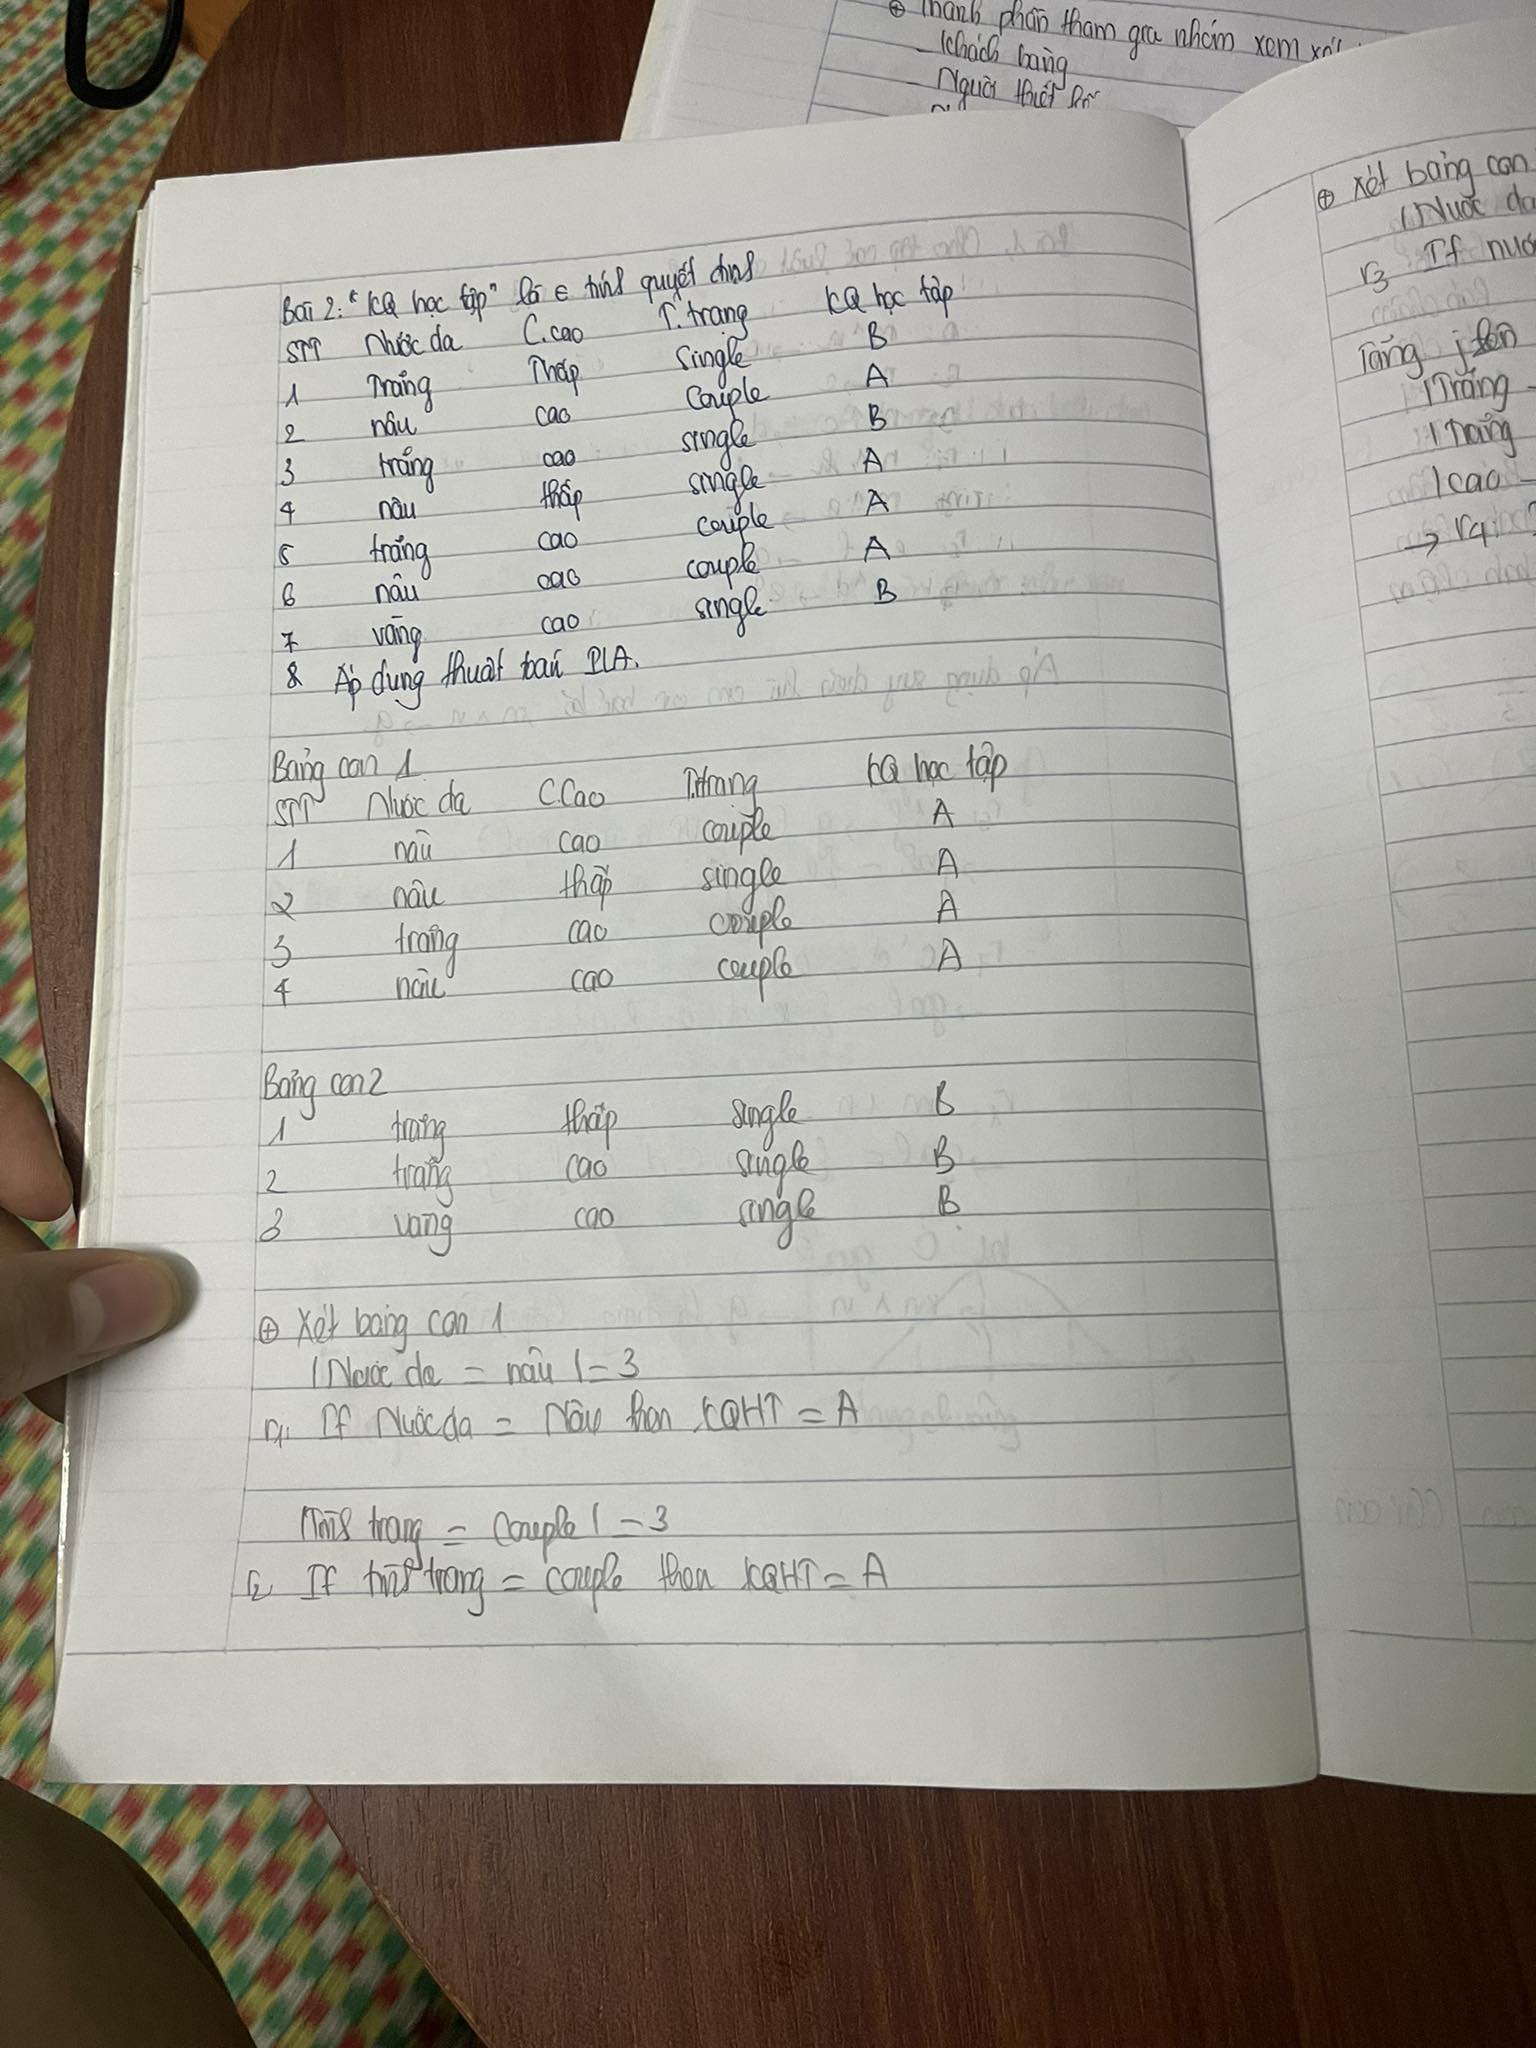 ⊕ Thành phần tham gia nhóm xem xét
- Khách hàng
- Người thiết kế
Bài 2: "KQ học tập" là ∈ tính quyết định
STT Nước da C.cao T.trạng KQ học tập
1 Trắng Thấp Single B
2 nâu cao Couple A
3 trắng cao single B
4 nâu thấp single A
5 trắng cao couple A
6 nâu cao couple A
7 vàng cao single B
8 Áp dụng thuật toán ILA.
Bảng con 1
STT Nước da C.Cao T.trạng KQ học tập
1 nâu cao couple A
2 nâu thấp single A
3 trắng cao couple A
4 nâu cao couple A
Bảng con 2
1 trắng thấp single B
2 trắng cao single B
3 vàng cao single B
⊕ Xét bảng con 1
|Nước da = nâu| = 3
r1: If Nước da = Nâu then KQHT = A
|Tình trạng = Couple| = 3
r2 If tình trạng = couple then KQHT = A
⊕ Xét bảng con
|Nước da
r3 If nước
Tăng j lên
|Trắng -
|Trắng
|cao -
→ r4: